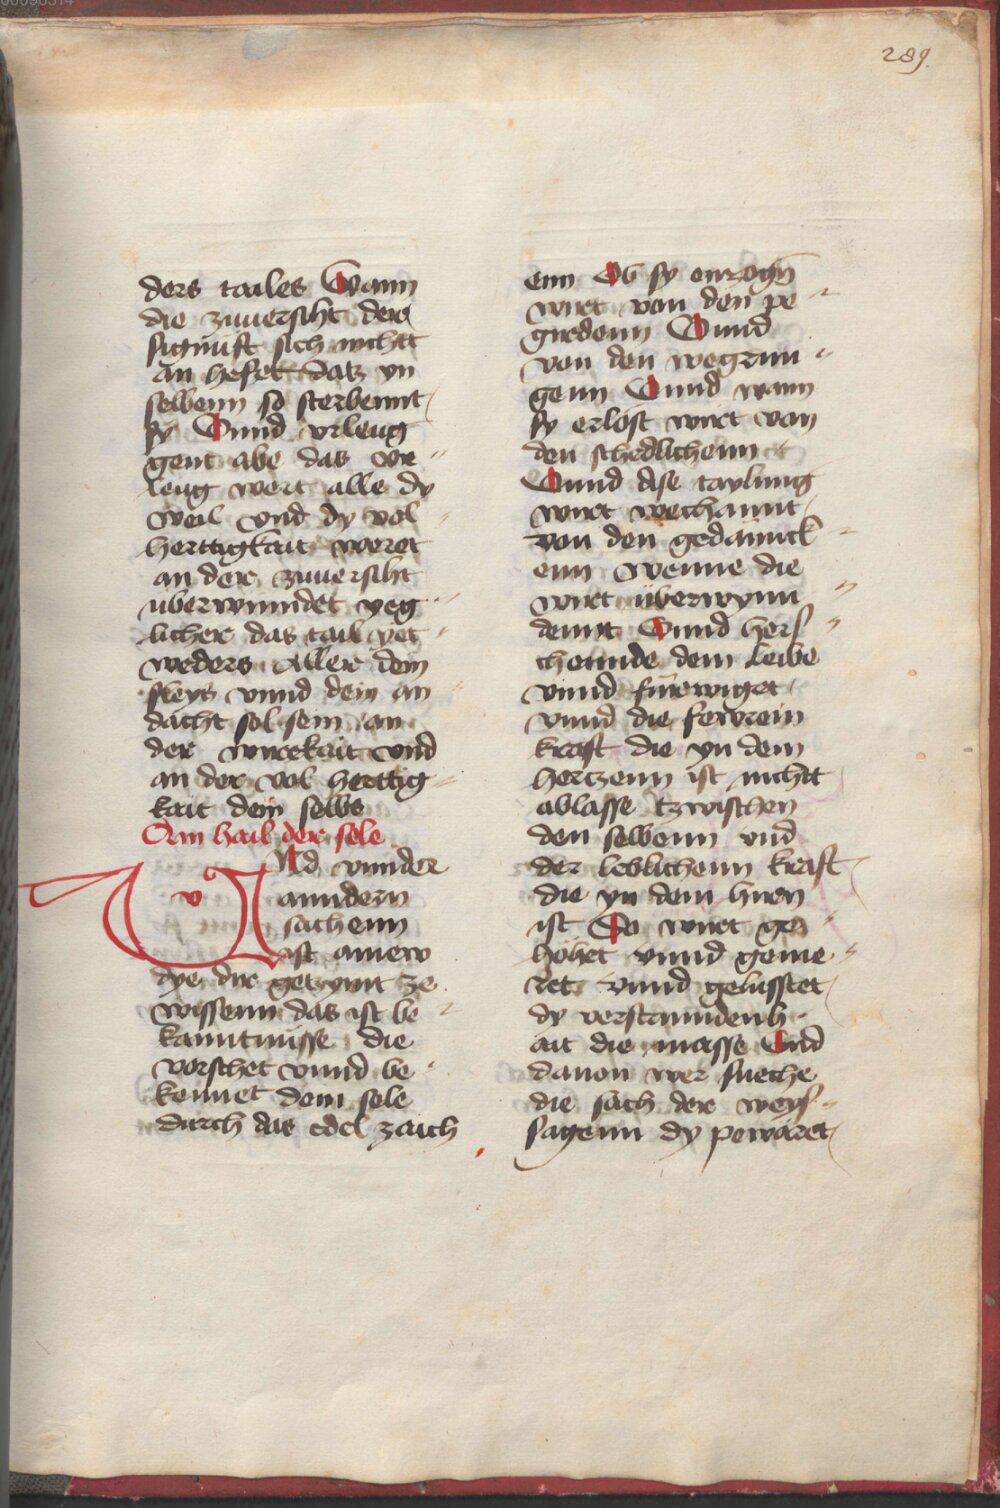 289.
ders tailes Wann
die zuuersiht der
signuft sich nichtt
an hefet datz yn
selbenn so sterbennt
sy Vnnd vrleug
gent abe das vr
leug wert alle dy
weil vnd dy vol
herttigkait weret
an der zuuersiht
uberwinndet yeg
licher das tail yet
weders Aller dein
fleys vnnd dein an
dacht sol sein an
der wirekait vnd
an der vol herttig
kait dein selbs
Ain hail der sele
v Nd vnnder
anndern
sachenn
ist ainew
dye dir gezymt ze
wissenn das ist be
kanntnusse die
vorschet vnnd be
kennet dein sele
durch das edel zaich
enn Ob sy enzogn̄
wirt von den pe
girdenn Vnnd
von den wegrun
genn Vnnd wann
sy erlost wirt von
den schedlichenn
Vnnd dise taylung
wirt wechannt
von den gedannck
enn Wenne die
wirt überwynn
dennt Vnnd hers
chennde dem leibe
vnnd fürwiget
vnnd die fewrein
kraft die yn dem
hertzenn ist nichtt
ablasse tzwischen
den selbenn vnd
der leblichenn kraft
die yn dem hiren
ist So wirt ge
höhet vnnd geme
ret vnnd gelusstet
dy verstanndenh
ait die masse Vnd
dauon wer sueche
die sach der weys
sagenn dy pewäret